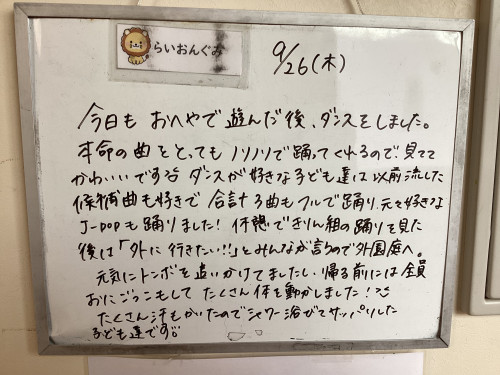 らいおんぐみ
9/26(木)
今日も おへやで 遊んだ後、ダンスをしました。
本命の曲をとってもノリノリで踊ってくれるので、見てて
かわいいです ダンスが好きな子ども達は以前流した
候補曲も好きで 合計3曲もフルで踊り、元々好きな
J-POPも踊りました! 休憩できりん組の踊りを見た
後は「外に行きたい!!」とみんなが言うので外園庭へ。
元気にトンボを追いかけてましたし、帰る前には全員
おにごっこもして たくさん体を動かしました!
たくさん汗もかいたのでシャワー浴びてサッパリした
子ども達です。